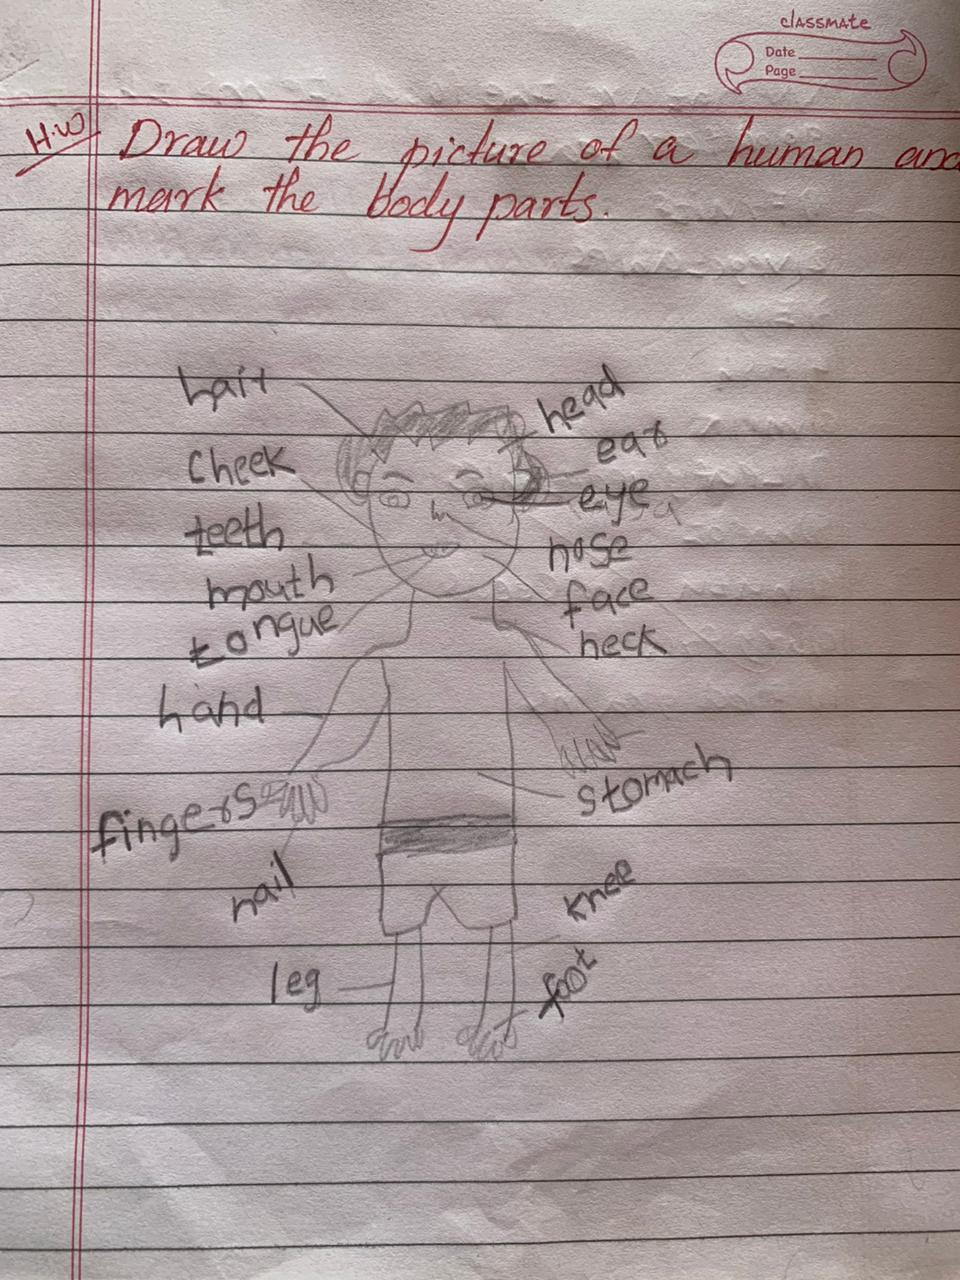 classmate
Date
Page
H.W
Draw the picture of a human and
mark the body parts.
hair
head
ear
cheek
eye
teeth
nose
mouth
face
tongue
neck
hand
stomach
fingers
nail
knee
leg
foot